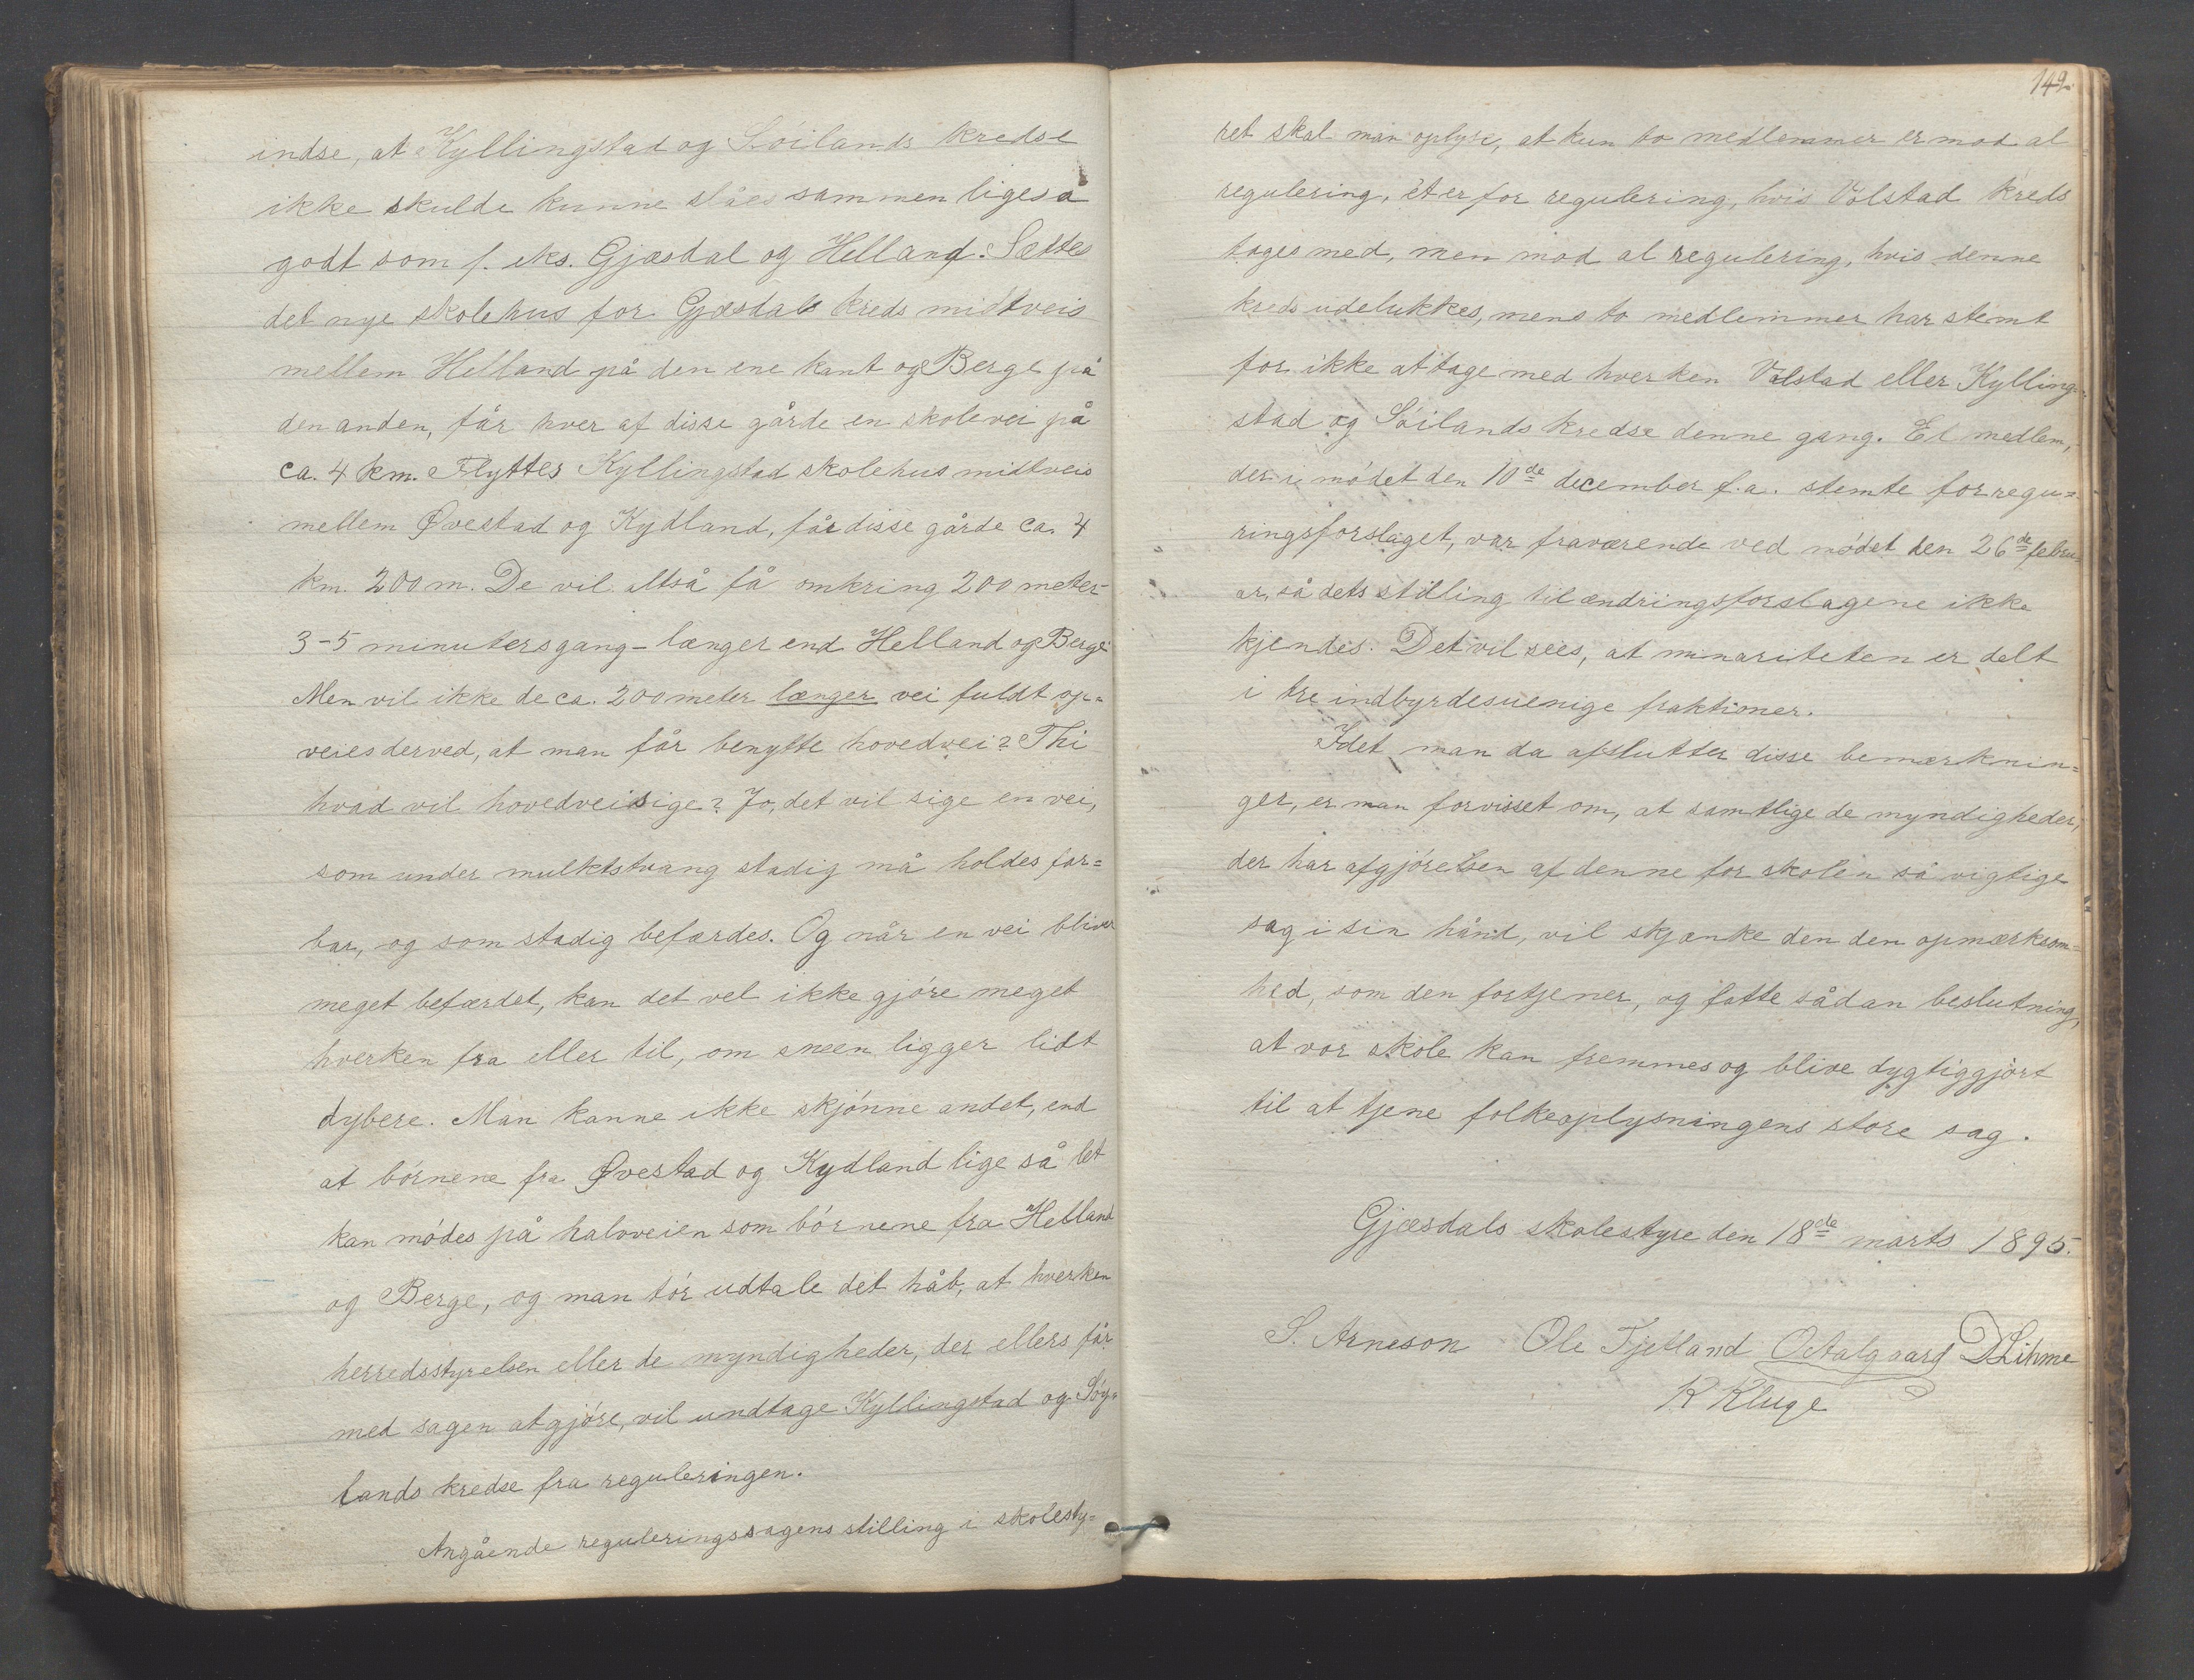 indse, at Kyllingstad og Söilands kredse
ikke skulde kunne slåes sammen ligeså
godt som f. eks. Gjæsdal og Helland. Sættes
det nye skolehus for Gjæsdals kreds midtveis
mellem Helland på den ene kant og Berge på
den anden, får hver af disse gårde en skolevei på
ca. 4 km. Flyttes Kyllingstad skolehus midtveis
mellem Øvestad og Kydland, får disse gårde ca. 4
km. 200 m. De vil altså få omkring 200 meter-
3-5 minutersgang- længer end Helland og Berge.
Men vil ikke de ca. 200 meter længer vei fuldt op=
veies derved, at man får benytte hovedvei? Thi
hvad vil hovedvei sige? Jo, det vil sige en vei,
som under mulktstvang stadig må holdes far=
bar, og som stadig befærdes. Og når en vei bliver
meget befærdet, kan det vel ikke gjöre meget
hverken fra eller til, om sneen ligger lidt
dybere. Man kanne ikke skjönne andet, end
at börnene fra Øvestad og Kydland lige så let
kan mödes på halvveien som börnene fra Helland
og Berge, og man tör udtale det håb, at hverken
herredsstyrelsen eller de myndigheder, der ellers får
med sagen at gjöre, vil undtage Kyllingstad og Söy=
lands kredse fra reguleringen.
Angående reguleringssagens stilling i skolesty=
149.
ret skal man oplyse, at kun to medlemmer er mod al
regulering, ét er for regulering, hvis Vølstad kreds
tages med, men mod al regulering, hvis denne
kreds udelukkes, mens to medlemmer har stemt
for ikke at tage med hverken Vølstad eller Kylling=
stad og Söilands kredse denne gang. Et medlem,
der i mödet den 10de december f.a. stemte for regu=
ringsforslaget, var fraværende ved mödet den 26de febru=
ar, så dets stilling til ændringsforslagene ikke
kjendes. Det vil sees, at minoriteten er delt
i tre indbyrdes uenige fraktioner.
Idet man da afslutter disse bemærknin=
ger, er man forvisset om, at samtlige de myndigheder,
der har afgjörelsen af denne for skolen så vigtige
sag i sin hånd, vil skjænke den den opmærksom=
hed, som den fortjener, og fatte sådan beslutning,
at vor skole kan fremmes og blive dygtiggjort
til at tjene folkeoplysningens store sag.
Gjæsdals skolestyre den 18de marts 1895.
S. Arneson Ole Fjetland O Aalgaard D Lihme
K Kluge